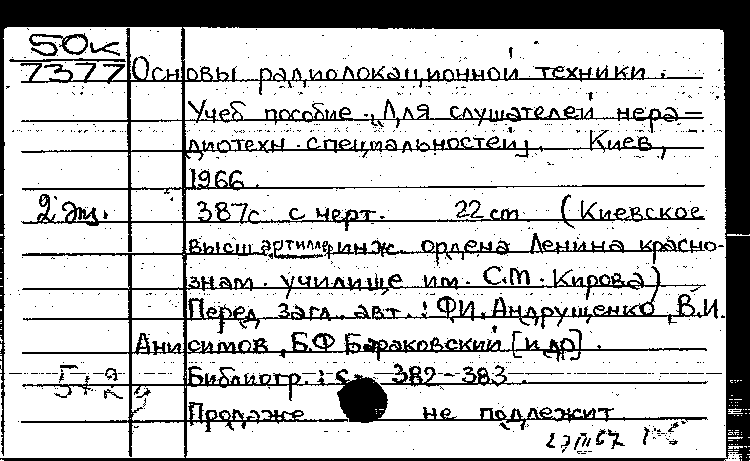 50к
7377
Основы радиолокационной техники.
Учеб пособие. [Для слушателей нера=
диотехн. специальностей]. Киев,
1966.
2 экз.
387с с черт. 22 cm (Киевское
высш артиллер инж. ордена Ленина красно-
знам. училище им. С.М. Кирова)
Перед загл. авт.: Ф.И. Андрущенко, В.И.
Анисимов, Б.Ф Бараковский [и др].
Библиогр.: с. 382-383.
Продаже не подлежит
27 III 67